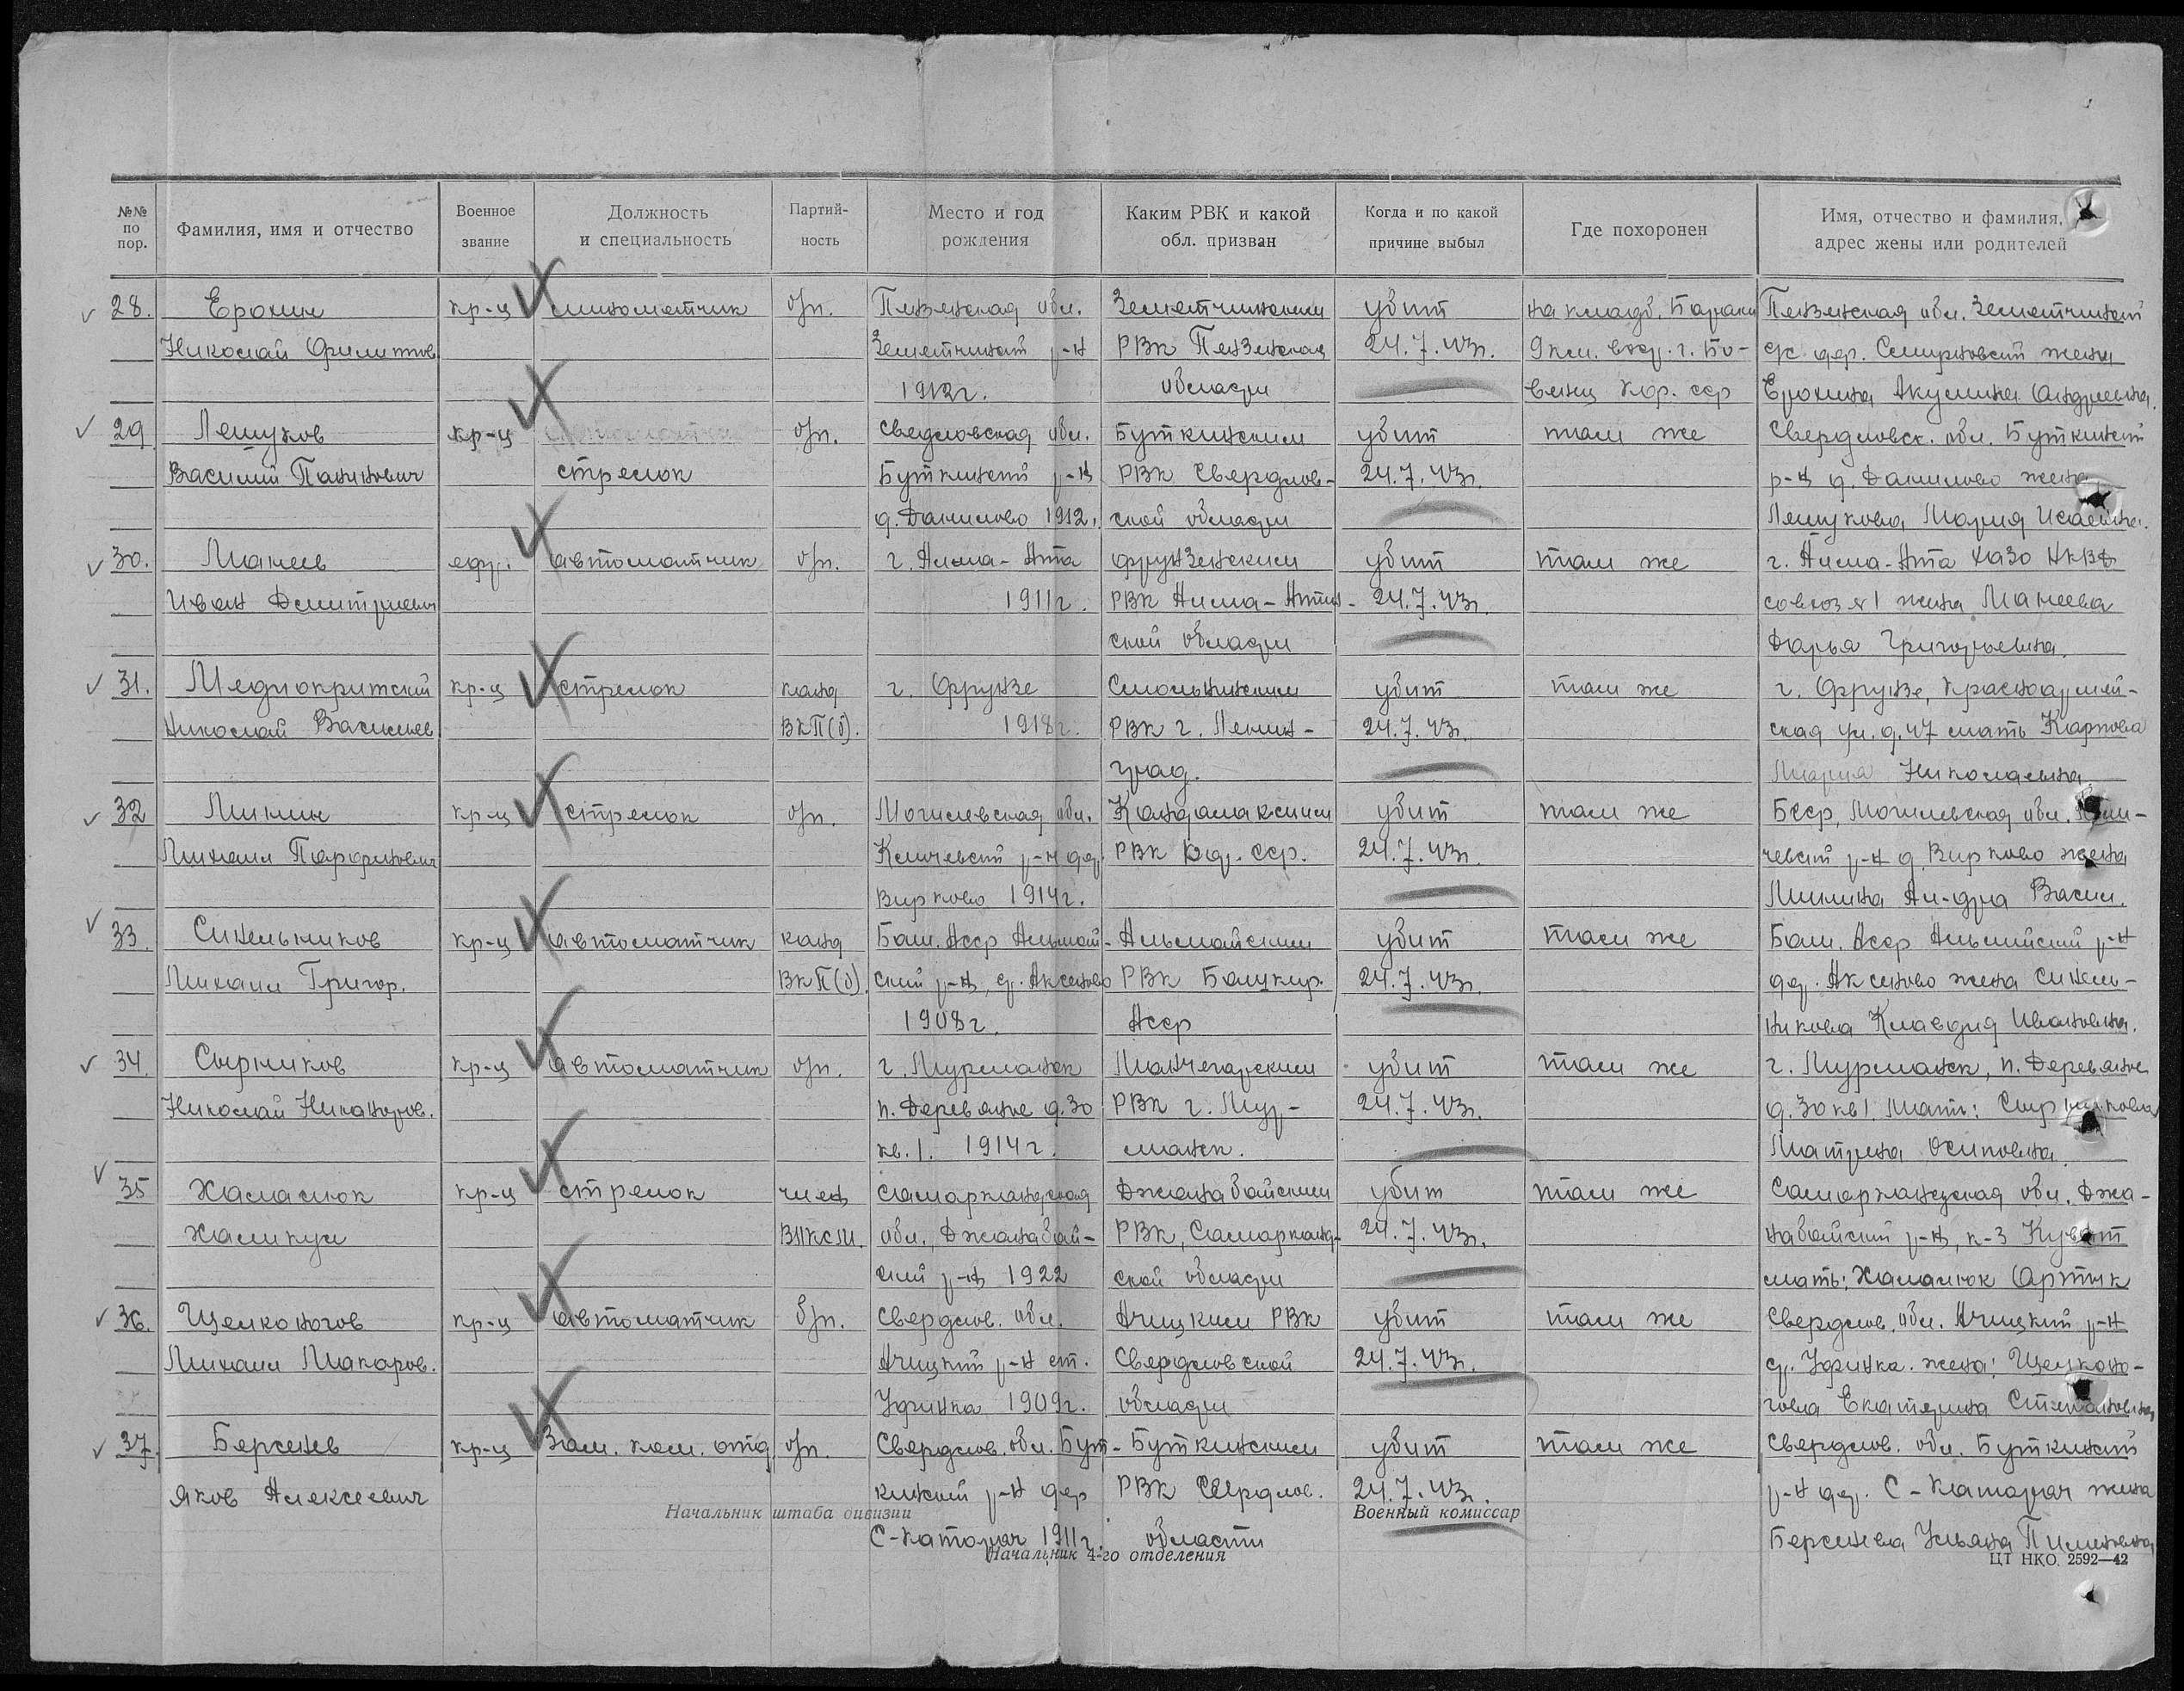 №№ по пор. Фамилия, имя и отчество Военное звание Должность и специальность Партийность Место и год рождения Каким РВК и какой обл. призван Когда и по какой причине выбыл Где похоронен Имя, отчество и фамилия, адрес жены или родителей
28. Ерохин кр-ц минометчик б/п. Пензенская обл. Земетчинским убит на кладб. Бараки Пензенская обл. Земетчинский
Николай Филиппов Земетчинский р-н РВК Пензенская 24.7.43г. 9 км. вост. г. По- дер. Смирновский жена
1912г. области венец Кар. сср Ерохина Акулина Андреевна.
29 Лешуков кр-ц б/п. Свердловская обл. Буткинским убит там же Свердловск. обл. Буткинский
Василий Панкович стрелок Буткинский р-н РВК Свердлов- 24.7.43г. р-н д. Данилово жена
д. Данилово 1912. ской области Лешукова Мария Исаевна.
30. Манеев ефр. автоматчик б/п. г. Алма-Ата Фрунзенским убит там же г. Алма-Ата НКВД
Иван Дмитриевич 1911г. РВК Алма-Атин- 24.7.43г. совхоз №1 жена Манеева
ской области Дарья Григорьевна.
31. Медиокритский кр-ц стрелок канд г. Фрунзе Смольнинским убит там же г. Фрунзе, Красноармей-
Николай Васильев 1918г. ВКП(б). РВК г. Ленин- 24.7.43г. ская ул. д. 47 мать Карпова
град. Мария Николаевна
32 Микин кр-ц стрелок б/п. Могилевская обл. Кандалакским убит там же Бсср, Могилевская обл. Кли-
Михаил Парфенович Кличевский р-н дер. РВК Кар. сср. 24.7.43г. чевский р-н д. Вирково жена
Вирково 1914г. Микина Ал-дра Васил.
33. Синельников кр-ц автоматчик канд Баш. Асср Альшей- Альшейским убит там же Баш. Асср Альшейский р-н
Михаил Григор. ВКП(б). ский р-н, д. Аксеново РВК Башкир. 24.7.43г. дер. Аксеново жена Синель-
1908г. Асср никова Клавдия Ивановна.
34. Сырников кр-ц автоматчик б/п. г. Мурманск Мончегорским убит там же г. Мурманск, п. Деревянное
Николай Никаноров. п. Деревяное д. 30 РВК г. Мур- 24.7.43г. д. 30 кв 1. Мать: Сырникова
кв. 1. 1914г. манск. Матрена Осиповна.
35 Хамаслюк кр-ц стрелок член Самаркандская Джамбайским убит там же Самаркандская обл. Джа-
Халикул ВЛКСМ. обл., Джанабай- РВК, Самарканд- 24.7.43г. набайский р-н, к-з Кувват
ский р-н 1922 ской области мать: Артык
36. Щелконогов кр-ц автоматчик б/п. Свердлов. обл. Ачицким РВК убит там же Свердлов. обл. Ачицкий р-н
Михаил Макаров. Ачицкий р-н ст. Свердловской 24.7.43г. д. Уфимка. жена: Щелконо-
Уфимка 1909г. области гова Екатерина Степановна
37. Берсенев кр-ц Зам. ком. отд б/п. Свердлов. обл. Бут- Буткинским убит там же Свердлов. обл. Буткинский
Яков Алексеевич кинский р-н дер РВК Свердлов. 24.7.43г. р-н дер. С-Катарач жена
Начальник штаба дивизии Военный комиссар
С-Катарач 1911г. области Берсенева Ульяна Пименовна
Начальник 4-го отделения ЦТ НКО. 2592—42